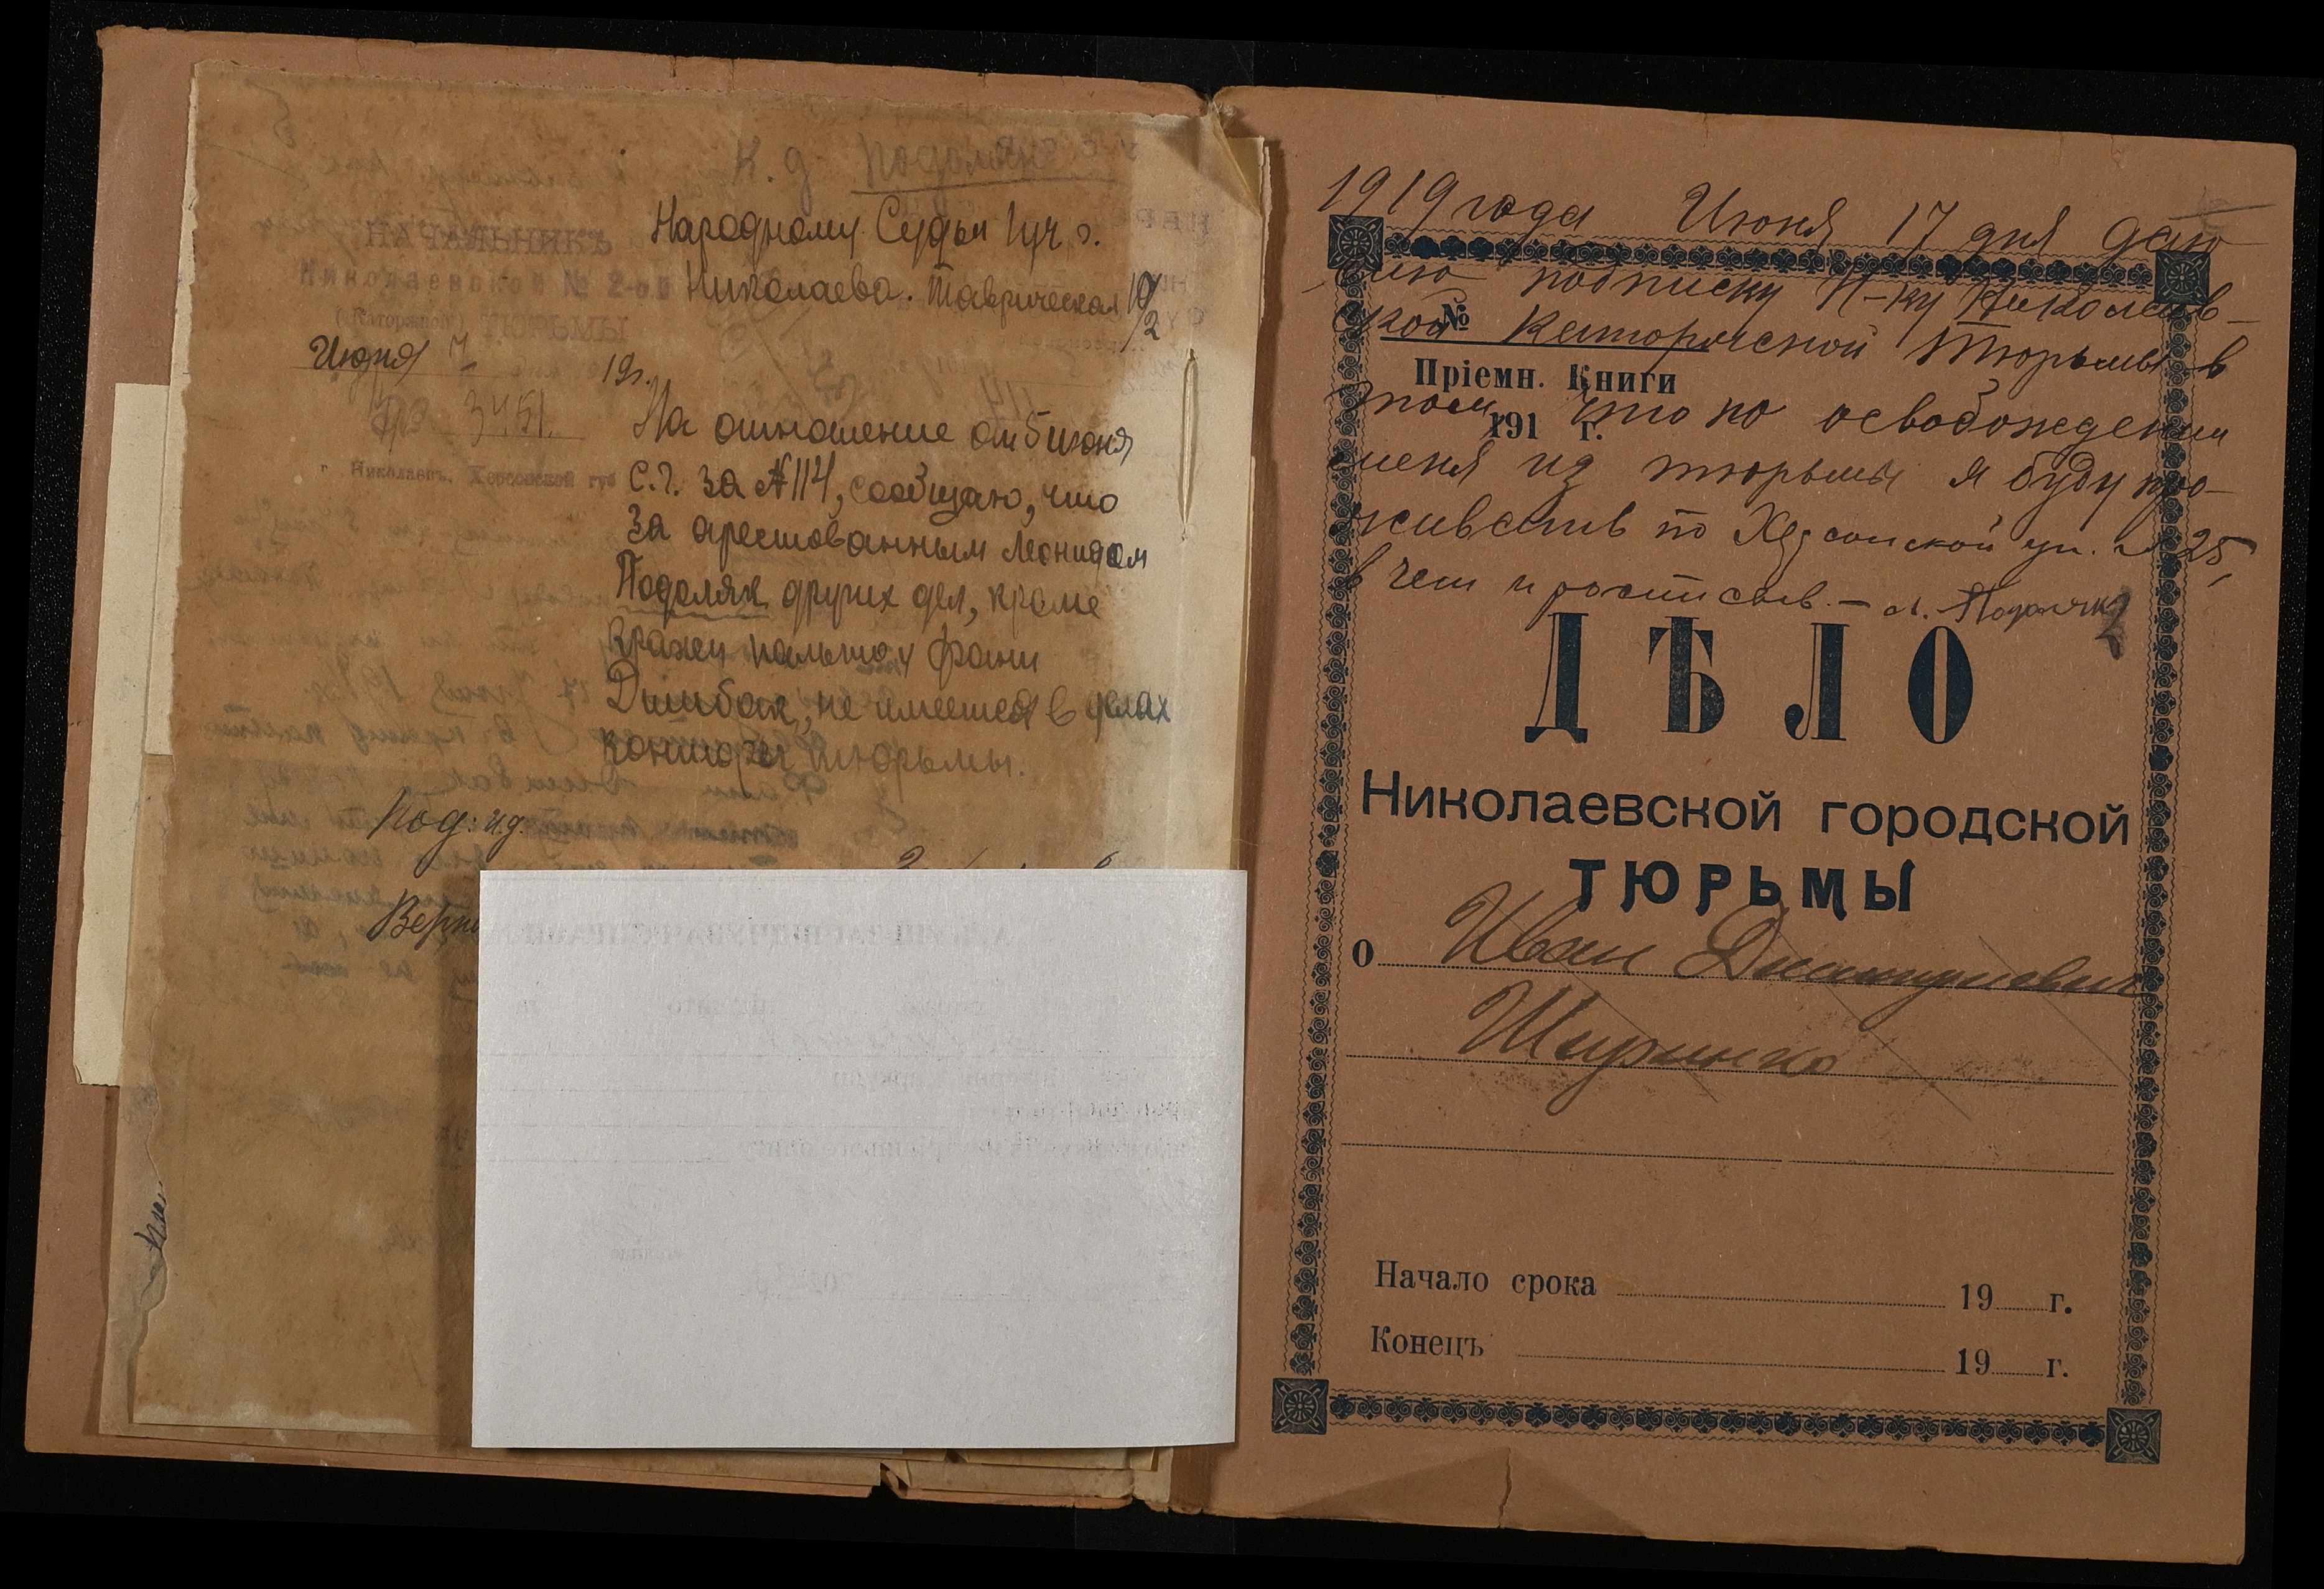 К. д Подоляк
НАЧАЛЬНИКЪ
Николаевской № 2-ой
(Каторжной) ТЮРЬМЫ
Июня 7 19 г.
№ 3451.
г. Николаевъ, Херсонской губ
Народному Судьи 1 уч г.
Николаева. Таврическая
На отношение от 5 июня
с.г. за № 114, сообщаю, что
за арестованным Леонидом
Подоляк других дел, кроме
кражи пальто у Фани
Дишбак, не имеется в делах
конторы тюрьмы.
Под: и.д.
1919 года Июня 17 дня даю
сию подписку Н-ку Николаев-
ской каторжской тюрьмы в
том, что по освобождении
меня из тюрьмы я буду про-
живать по Херсонской ул. № 25,
в чем и росписыв. – Л. Подоляк
№
Пріемн. Книги
191 г.
ДѢЛО
Николаевской городской
ТЮРЬМЫ
о Иван
Начало срока 19 г.
Конецъ 19 г.